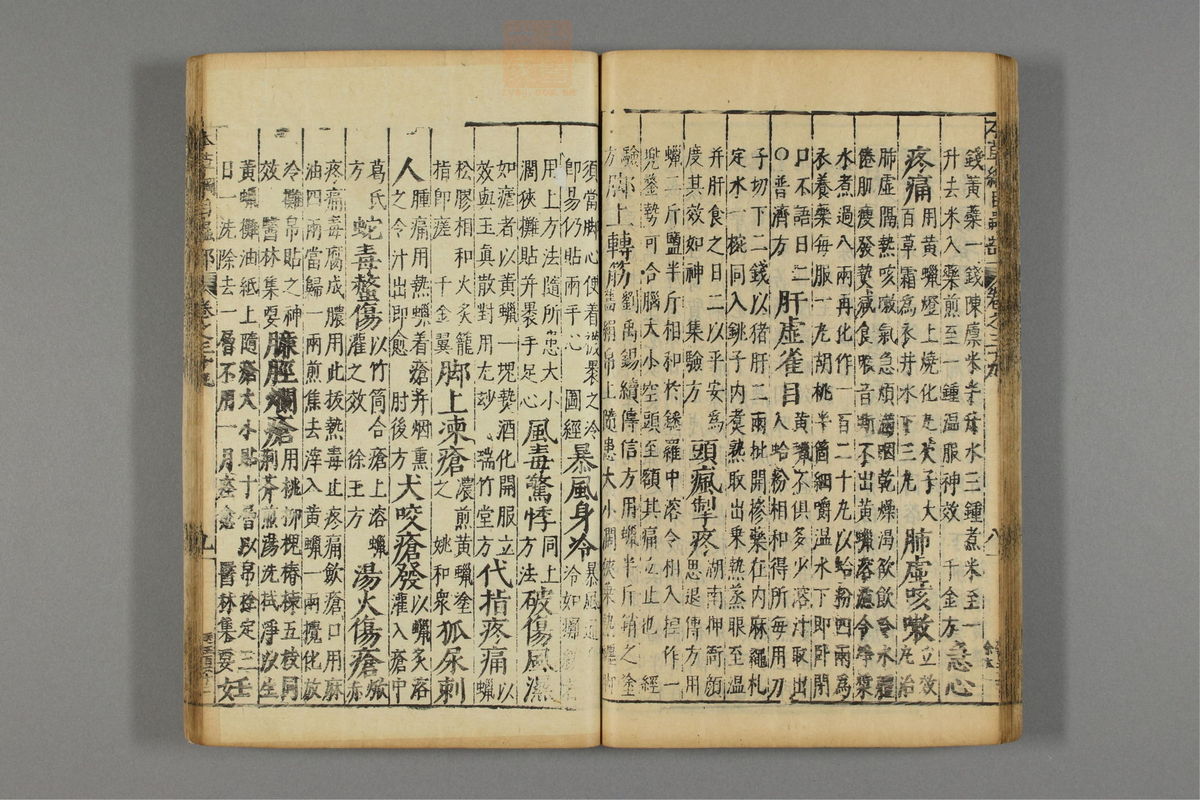 錢黃藥一錢陳廩米半升水三鍾煮米至一
升去米入藥煎至一鍾溫服神效 千金方 急心
疼痛 用黃蠟燈上燒化丸芡子大
百草霜爲衣井水下三丸 肺虛咳嗽 立效丸治
肺虛膈熱咳嗽氣急煩滿咽乾燥渴欲飲冷水體
倦肌瘦發熱減食喉音嘶不出黃蠟溶濾令淨漿
水煮過八兩再化作一百二十丸以蛤粉四兩爲
衣養藥每服一丸胡桃半箇細嚼溫水下即卧閉
口不語日二 肝虛雀目 黃蠟不俱多少溶汁取出
○普濟方 入蛤粉相和得所每用刀
子切下二錢以猪肝二兩批開摻藥在內麻繩札
定水一椀同入銚子內煮熟取出乗熱蒸眼至溫
并肝食之日二以平安爲
度其效如神 集驗方 頭瘋掣疼 湖南押衙顏
思退傳方用
蠟二斤鹽半斤相和於鑞羅中溶令相入揑作一
兜鍪勢可合腦大小空頭至額其痛立止也 經
驗方 脚上轉筋 劉禹錫續傳信方用蠟半斤銷之塗
舊絹帛上隨患大小濶狹乗熱纏脚
須當脚心便着襪裹之冷
即易仍貼兩手心 圖經 暴風身冷 暴風通
身冷如癱
用上方法隨所患大小
濶狹攤貼并裹手足心 風毒驚悸 同上
方法 破傷風濕
如瘧者以黃蠟一塊熱酒化開服立
效與玉真散對用尤妙 瑞竹堂方 代指疼痛 以
蠟
松膠相和火炙籠
指即瘥 千金翼 脚上凍瘡 濃煎黃蠟塗
之 姚和衆 狐尿刺
人 腫痛用熱蠟着瘡并烟熏
之令汁出即愈 肘後方 犬咬瘡發 以蠟炙溶
灌入瘡中
葛氏
方 蛇毒螫傷 以竹筒合瘡上溶蠟
灌之效 徐王方 湯火傷瘡 焮
赤
疼痛毒腐成膿用此拔熱毒止疼痛歛瘡口用麻
油四兩當歸一兩煎焦去滓入黃蠟一兩攪化放
冷攤帛貼之神
效 醫林集要 臁脛爛瘡 用桃柳槐椿楝五枝同
荊芥煎湯洗拭淨以生
黃蠟攤油紙上隨瘡大小貼十層以帛拴定三
日一洗除去一層不用一月痊愈 醫林集要 妊
女